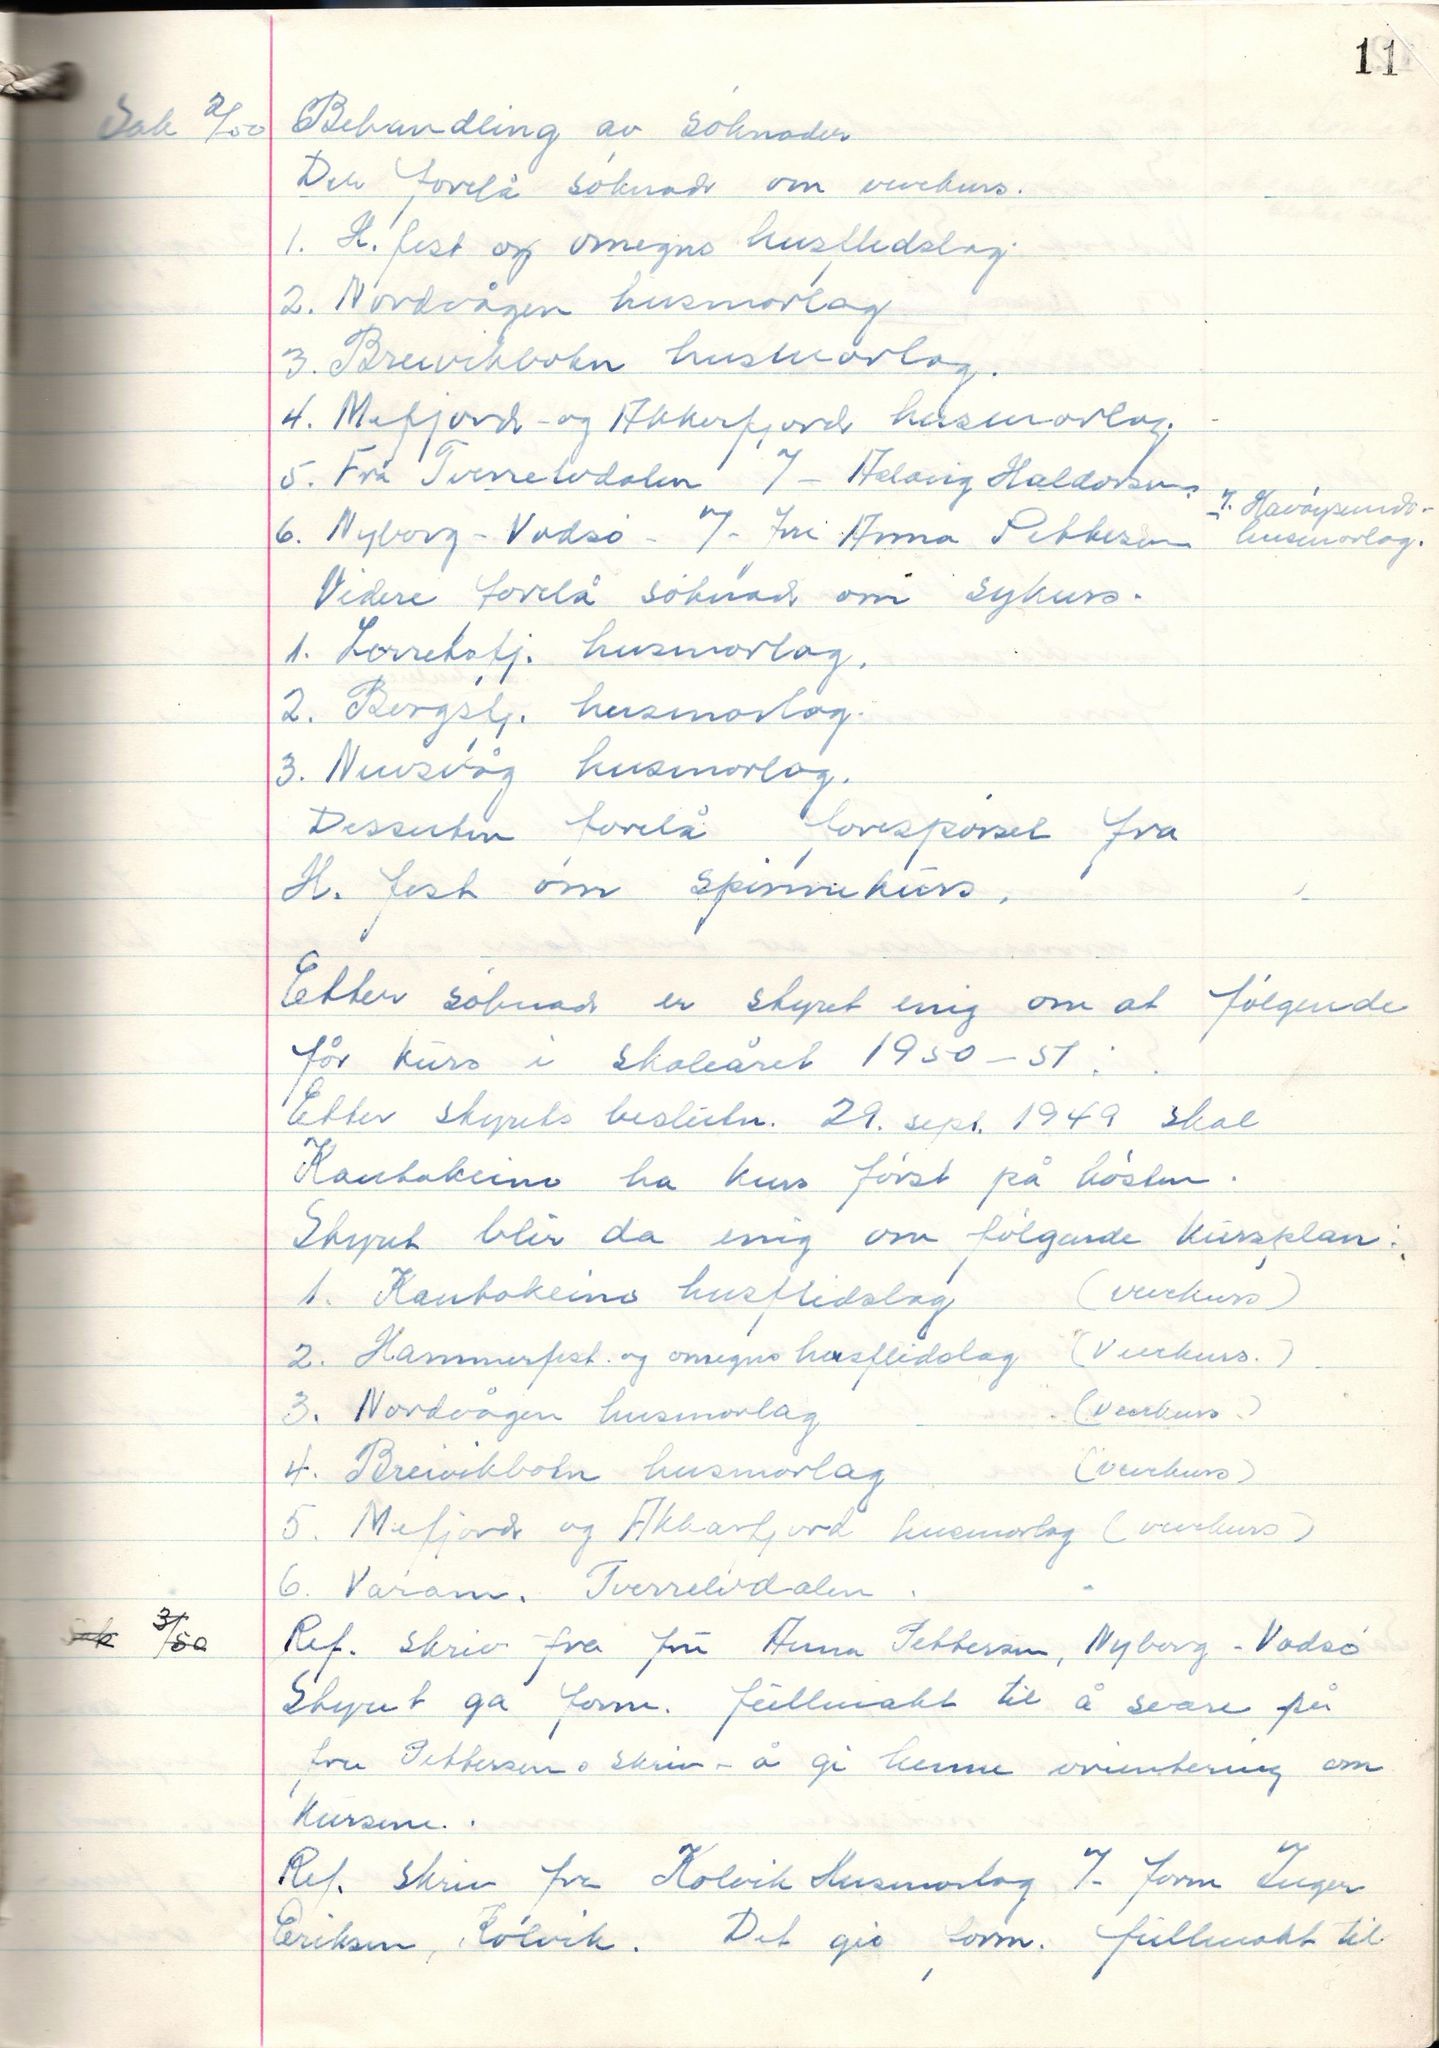 11
Sak 2/50 Behandling av søknader
Det forelå søknad om vevkurs.
1. H.fest og omegns husflidslag
2. Nordvågen husmorlag
3. Breivikbotn husmorlag.
4. Mefjord - og Akkarfjord husmorlag.
5. Frå Tverrelvdalen v/- Aslaug Haldorsen.
6. Nyborg - Vadsø - v/- fru Anna Pettersen
7. Havøysunds-
husmorlag.
Videre forelå søknad om sykurs.
1. husmorlag.
2. Bergsfj. husmorlag.
3. Nuvsvåg husmorlag.
Dessuten forelå forespørsel fra
H. fest om spinnekurs.
Etter søknad er styret enig om at følgende
får kurs i skoleåret 1950-51:
Etter styrets beslutn. 29. sept. 1949 skal
Kautokeino ha kurs først på høsten.
Styret blir da enig om følgende kursplan:
1. Kautokeino husflidslag (vevkurs)
2. Hammerfest og omegns husflidslag (Vevkurs.)
3. Nordvågen husmorlag (vevkurs.)
4. Breivikbotn husmorlag (vevkurs)
5. Mefjord og Akkarfjord husmorlag (vevkurs)
6. Varam. Tverrelvdalen.
Sak 3/50 Ref. skriv fra fru Anna Pettersen, Nyborg - Vadsø
Styret ga form. fullmakt til å svare på
fru Pettersens skriv - å gi henne orientering om
kursene.
Ref. skriv fra Kolvik Husmorlag v/- form Inger
Eriksen, Kolvik. Det gis form. fullmakt til